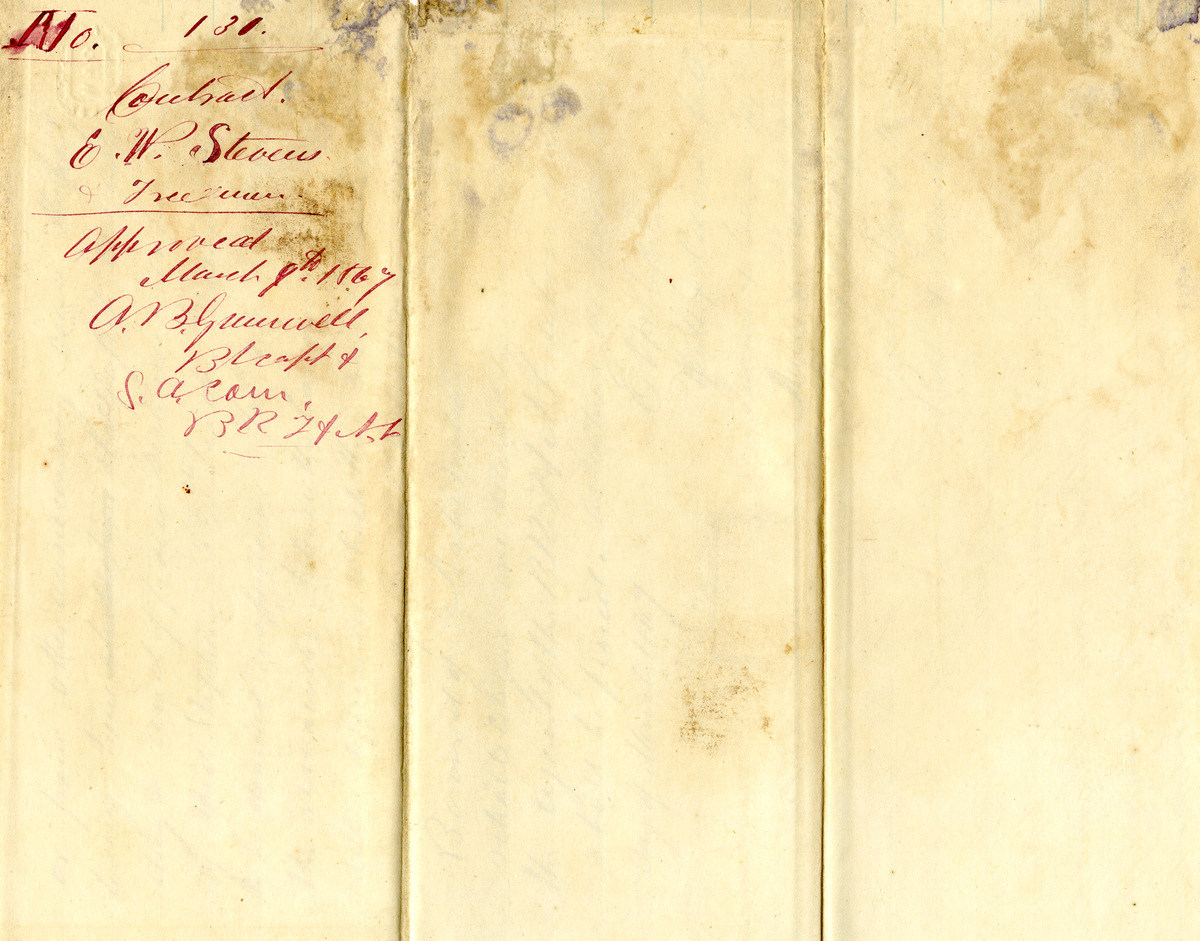 No. 131.
Contract.
E. W. Stevens.
& Freeman.
Approved
March 9th. 1867
A. B. Grumwell,
Bt Capt &
S. A. Com.,
B R F & A. L